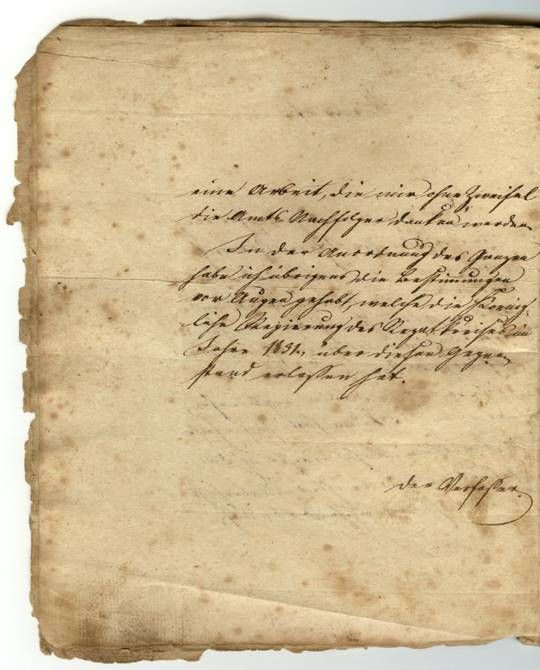 eine Arbeit, die mir ohne Zweifel
die Amts Nachfolger danken werden.
In der Anordnung des Ganzen
habe ich übrigens die Bestimmungen
vor Augen gehabt, welche die Koenig-
liche Regierung des Rezatkreises im
Jahre 1831, über diesen Gegen-
stand erlassen hat.
Der Verfasser.